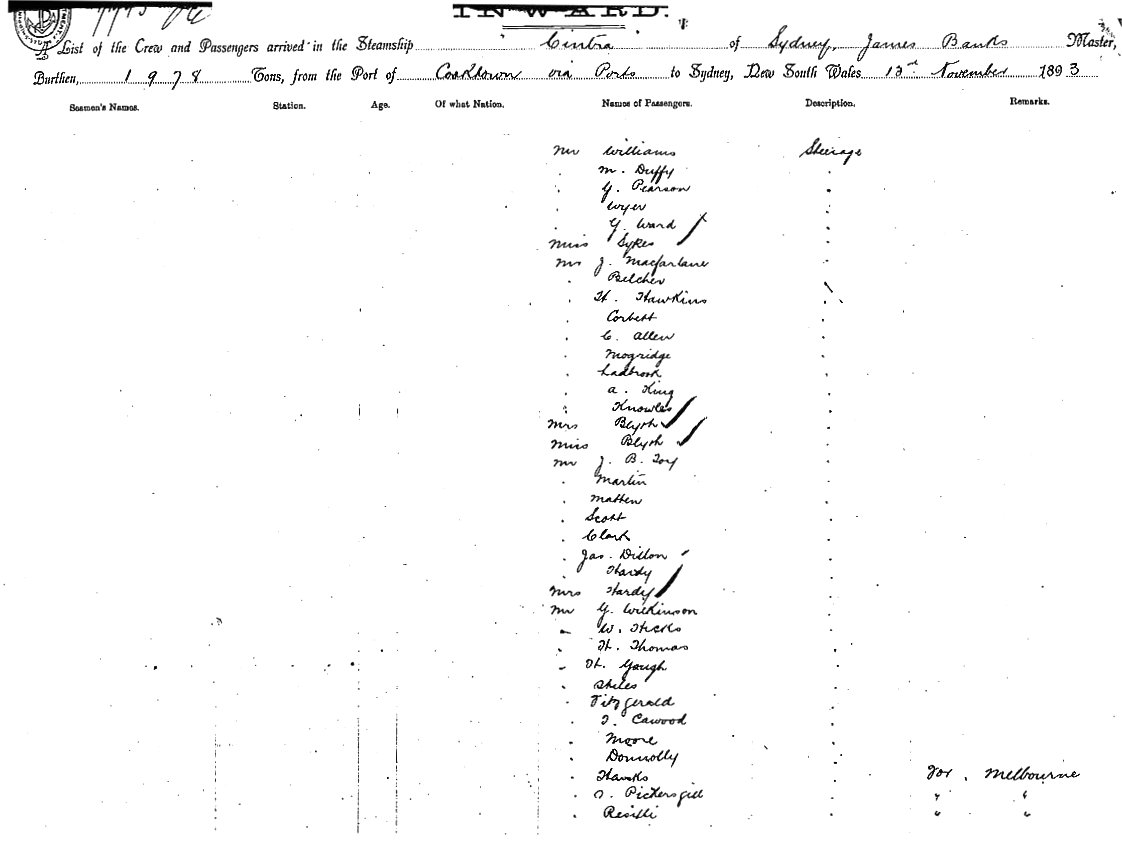 INWARD.
A List of the Crew and Passengers arrived in the Steamship "Cintra" of Sydney, James Banks Master,
Burthen, 1978 Tons, from the Port of Cooktown via Ports to Sydney, New South Wales 13th November 1893
Seamen's Names. Station. Age. Of what Nation. Names of Passengers. Description. Remarks.
Mr Williams Steerage
" M. Duffy "
" G. Pearson "
" Wyer "
" G. Ward "
Miss Sykes "
Mr J. Macfarlane "
" Belcher "
" H. Hawkins "
" Corbett "
" C. Allen "
" Mogridge "
" Ladbrook "
" A. King "
" Knowles "
Mrs Blyth "
Miss Blyth "
Mr J. B. Toy "
" Martin "
" Matten "
" Scott "
" Clark "
" Jas. Dillon "
" Hardy "
Mrs Hardy "
Mr G. Wilkinson "
" W. Hicks "
" H. Thomas "
" H. Gough "
" Stiles "
" Fitzgerald "
" Cawood "
" Moore "
" Donnolly "
" Hawks " For Melbourne
" Pickersgill " " "
" " " "